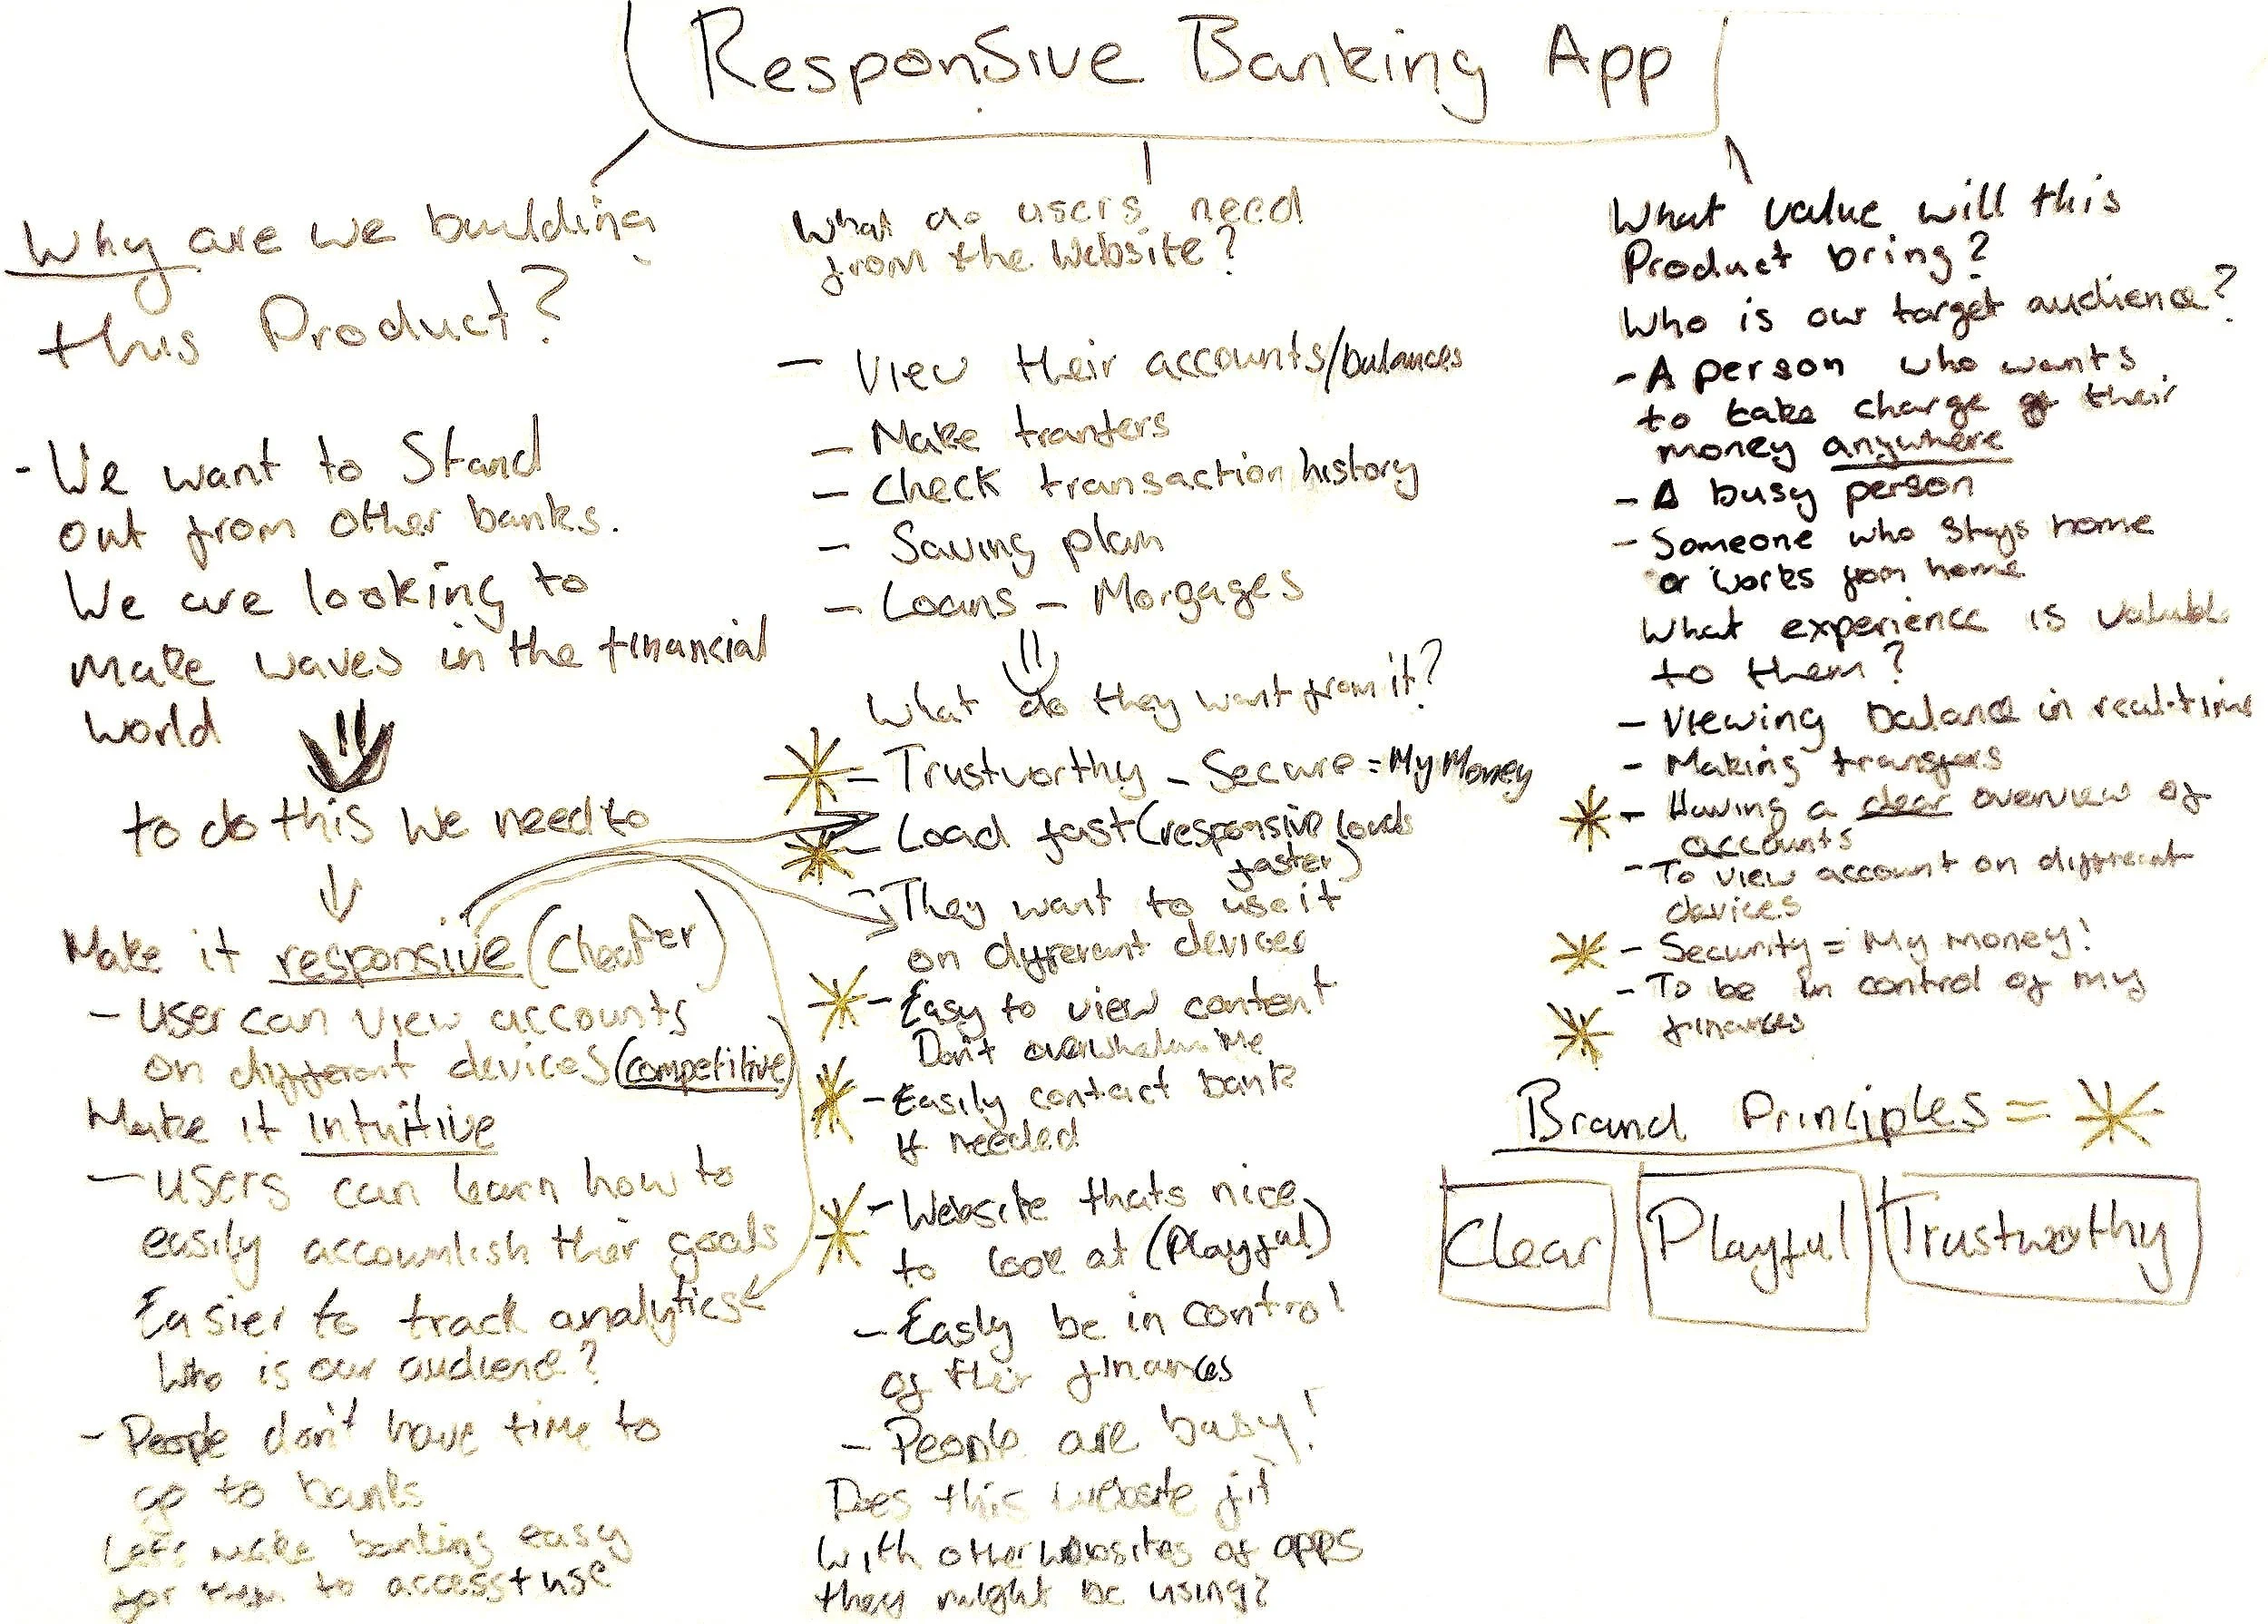 Responsive Banking App
Why are we building
this Product?
- We want to Stand
out from other banks.
We are looking to
make waves in the financial
world
to do this we need to
Make it responsive (Cheaper)
- User can view accounts
on different devices (competitive)
Make it intuitive
- Users can learn how to
easily accomlish their goals
Easier to track analytics
Who is our audience?
- People don't have time to
go to banks
Let's make banking easy
for them to access + use
What do users need
from the Website?
- View their accounts/balances
- Make tranfers
- Check transaction history
- Saving plan
- Loans - Morgages
What do they want from it?
- Trustworthy - Secure = My Money
- Load fast (responsive loads
faster)
- They want to use it
on different devices
- Easy to view content
Don't overwhelm me
- Easily contact bank
if needed
- Website thats nice
to look at (Playful)
- Easly be in control
of their finances
- People are busy!
Does this website fit
with other websites of apps
they might be using?
What value will this
Product bring?
Who is our target audience?
- A person who wants
to take charge of their
money anywhere
- A busy person
- Someone who stays home
or works from home
What experience is valuable
to them?
- Viewing balance in real-time
- Making transfers
- Having a clear overview of
accounts
- To view account on different
devices
- Security = My money!
- To be in control of my
finances
Brand Principles =
Clear Playful Trustworthy